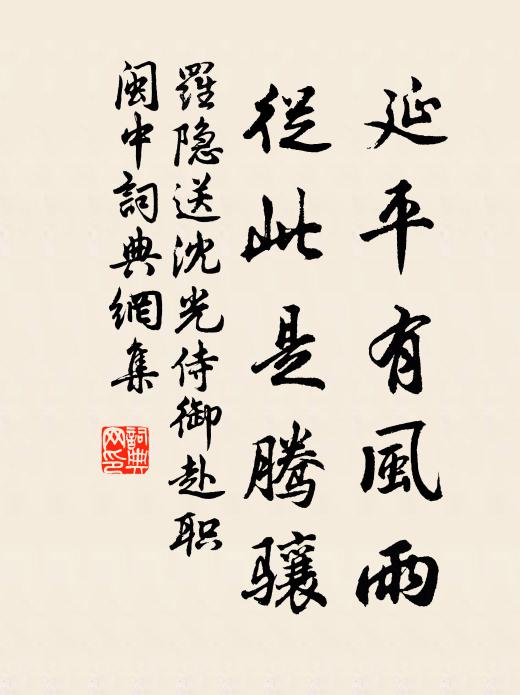 延平有風雨
從此是腾驤
羅隐送沈光侍御赴职
闽中詞典網集
詞典网印